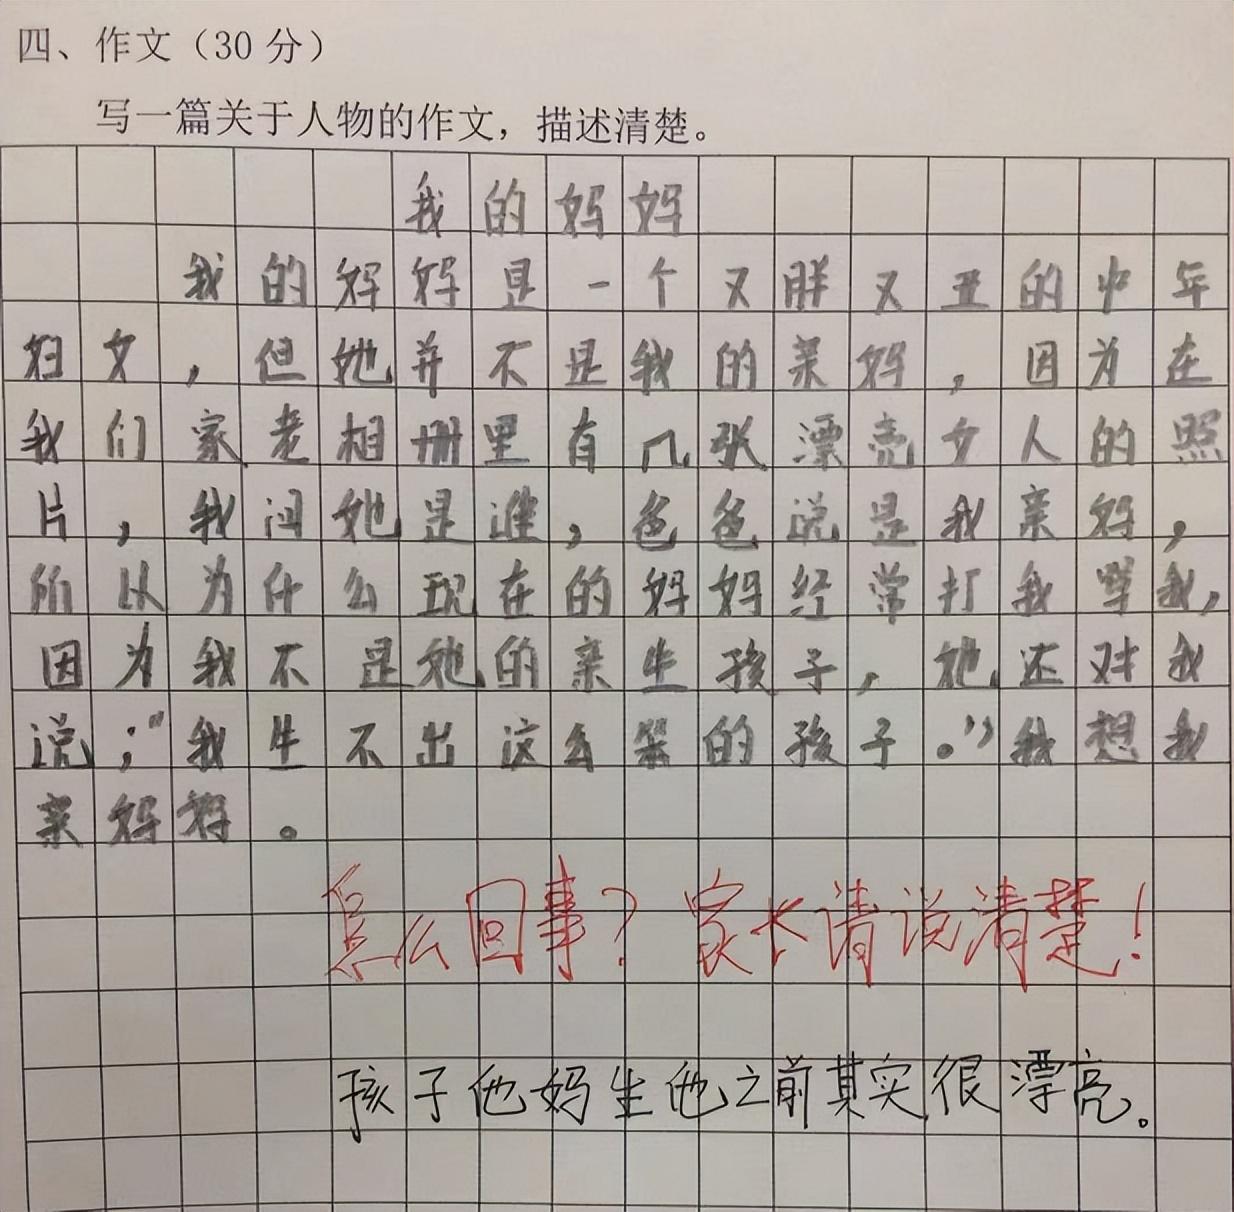 四、作文（30 分）
写一篇关于人物的作文，描述清楚。
我的妈妈
我的妈妈是一个又胖又丑的中年
妇女，但她并不是我的亲妈，因为在
我们家老相册里有几张漂亮女人的照
片，我问她是谁，爸爸说是我亲妈，
所以为什么现在的妈妈经常打我骂我，
因为我不是她的亲生孩子，她还对我
说；“我生不出这么笨的孩子。”我想我
亲妈妈。
怎么回事？家长请说清楚！
孩子他妈生他之前其实很漂亮。